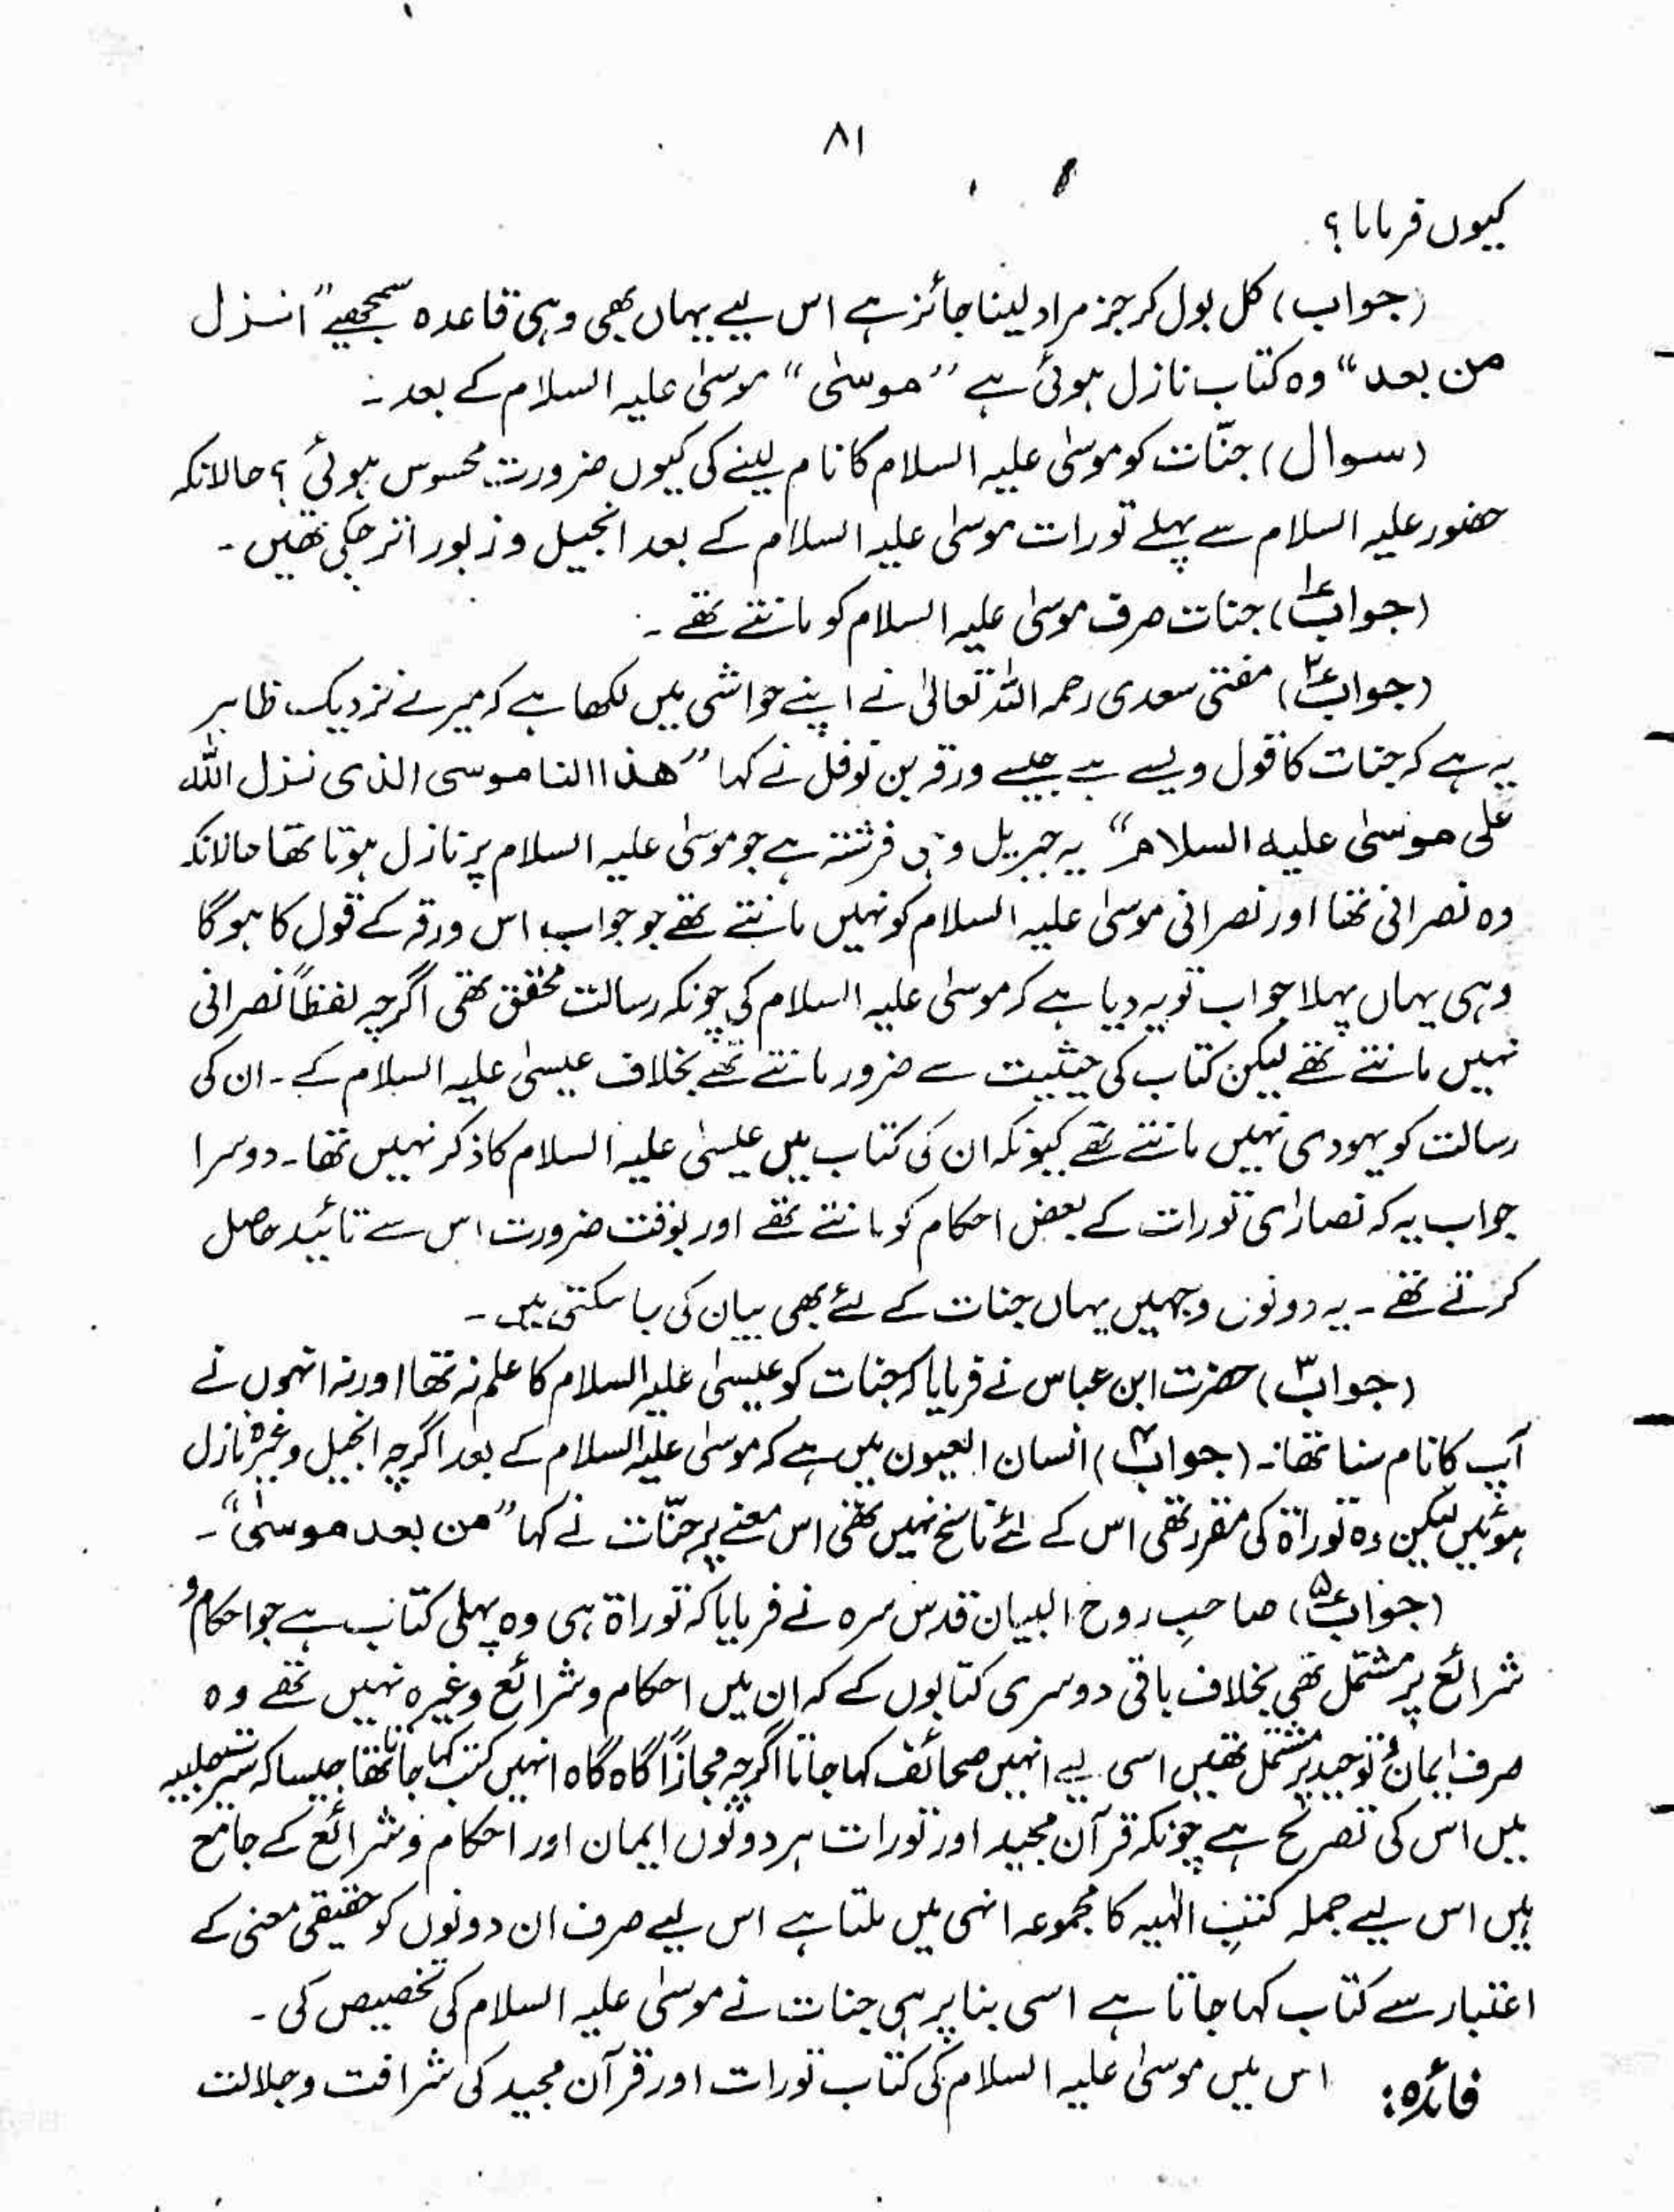 ۸۱
کیوں فرمایا؟
(جواب) کل بول کر جز مراد لینا جائز ہے اس لیے یہاں بھی وہی قاعدہ سمجھیے ”انزل
من بعد“ وہ کتاب نازل ہوئی ہے ”موسٰی“ موسیٰ علیہ السلام کے بعد۔
(سوال) جنّات کو موسیٰ علیہ السلام کا نام لینے کی کیوں ضرورت محسوس ہوئی؟ حالانکہ
حضور علیہ السلام سے پہلے تورات موسیٰ علیہ السلام کے بعد انجیل و زبور اتر چکی تھیں۔
(جواب ۱؎) جنات صرف موسیٰ علیہ السلام کو مانتے تھے۔
(جواب ۲؎) مفتی سعدی رحمہ اللہ تعالیٰ نے اپنے حواشی میں لکھا ہے کہ میرے نزدیک ظاہر
یہ ہے کہ جنات کا قول ویسے ہے جیسے ورقہ بن نوفل نے کہا ”ھذا النا موسی الذی نزل اللہ
علی موسیٰ علیہ السلام“ یہ جبریل وہی فرشتہ ہے جو موسیٰ علیہ السلام پر نازل ہوتا تھا حالانکہ
وہ نصرانی تھا اور نصرانی موسیٰ علیہ السلام کو نہیں مانتے تھے جو جواب اس ورقہ کے قول کا ہوگا
وہی یہاں پہلا جواب تو یہ دیا ہے کہ موسیٰ علیہ السلام کی چونکہ رسالت محقق تھی اگرچہ لفظاً نصرانی
نہیں مانتے تھے لیکن کتاب کی حیثیت سے ضرور مانتے تھے بخلاف عیسیٰ علیہ السلام کے۔ ان کی
رسالت کو یہودی نہیں مانتے تھے کیونکہ ان کی کتاب میں عیسیٰ علیہ السلام کا ذکر نہیں تھا۔ دوسرا
جواب یہ کہ نصارٰی تورات کے بعض احکام کو مانتے تھے اور بوقت ضرورت اس سے تائید حاصل
کرتے تھے۔ یہ دونوں وجہیں یہاں جنات کے لئے بھی بیان کی جا سکتی ہیں۔
(جواب ۳) حضرت ابن عباس نے فرمایا کہ جنات کو عیسیٰ علیہ السلام کا علم نہ تھا اور نہ انہوں نے
آپ کا نام سنا تھا۔ (جواب ۴) انسان العیون میں ہے کہ موسیٰ علیہ السلام کے بعد اگرچہ انجیل وغیرہ نازل
ہوئیں لیکن وہ توراۃ کی مقرر تھی اس کے لئے ناسخ نہیں تھی اس معنے پر جنّات نے کہا ”من بعد موسیٰ“۔
(جواب ۵؎) صاحبِ روح البیان قدس سرہ نے فرمایا کہ توراۃ ہی وہ پہلی کتاب ہے جو احکام و
شرائع پر مشتمل تھی بخلاف باقی دوسری کتابوں کے کہ ان میں احکام و شرائع وغیرہ نہیں تھے وہ
صرف ایمان و توحید پر مشتمل تھیں اسی لیے انہیں صحائف کہا جاتا اگرچہ مجازاً گاہ گاہ انہیں کتب کہا جاتا تھا جیسا کہ سیر حلبیہ
میں اس کی تصریح ہے چونکہ قرآن مجید اور تورات ہر دونوں ایمان اور احکام و شرائع کے جامع
ہیں اس لیے جملہ کتبِ الٰہیہ کا مجموعہ انہی میں ملتا ہے اس لیے صرف ان دونوں کو حقیقی معنی کے
اعتبار سے کتاب کہا جاتا ہے اسی بنا پر ہی جنات نے موسیٰ علیہ السلام کی تخصیص کی۔
فائدہ: اس میں موسیٰ علیہ السلام کی کتاب تورات اور قرآن مجید کی شرافت و جلالت